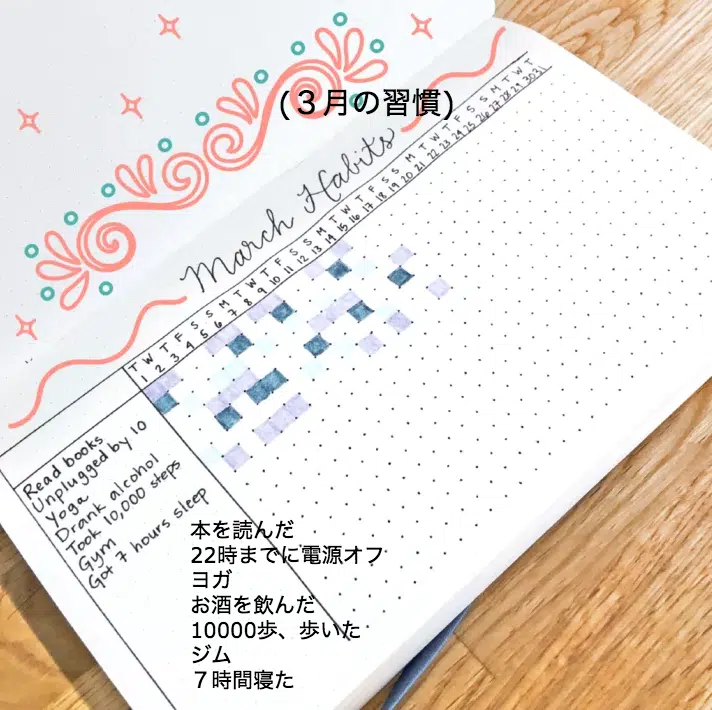 (３月の習慣)
March Habits
T W T F S S M T W T F S S M T W T F S S M T W T F S S M T W T
1 2 3 4 5 6 7 8 9 10 11 12 13 14 15 16 17 18 19 20 21 22 23 24 25 26 27 28 29 30 31
Read books
Unplugged by 10
Yoga
Drank alcohol
Took 10,000 steps
Gym
Got 7 hours sleep
本を読んだ
22時までに電源オフ
ヨガ
お酒を飲んだ
10000歩、歩いた
ジム
７時間寝た